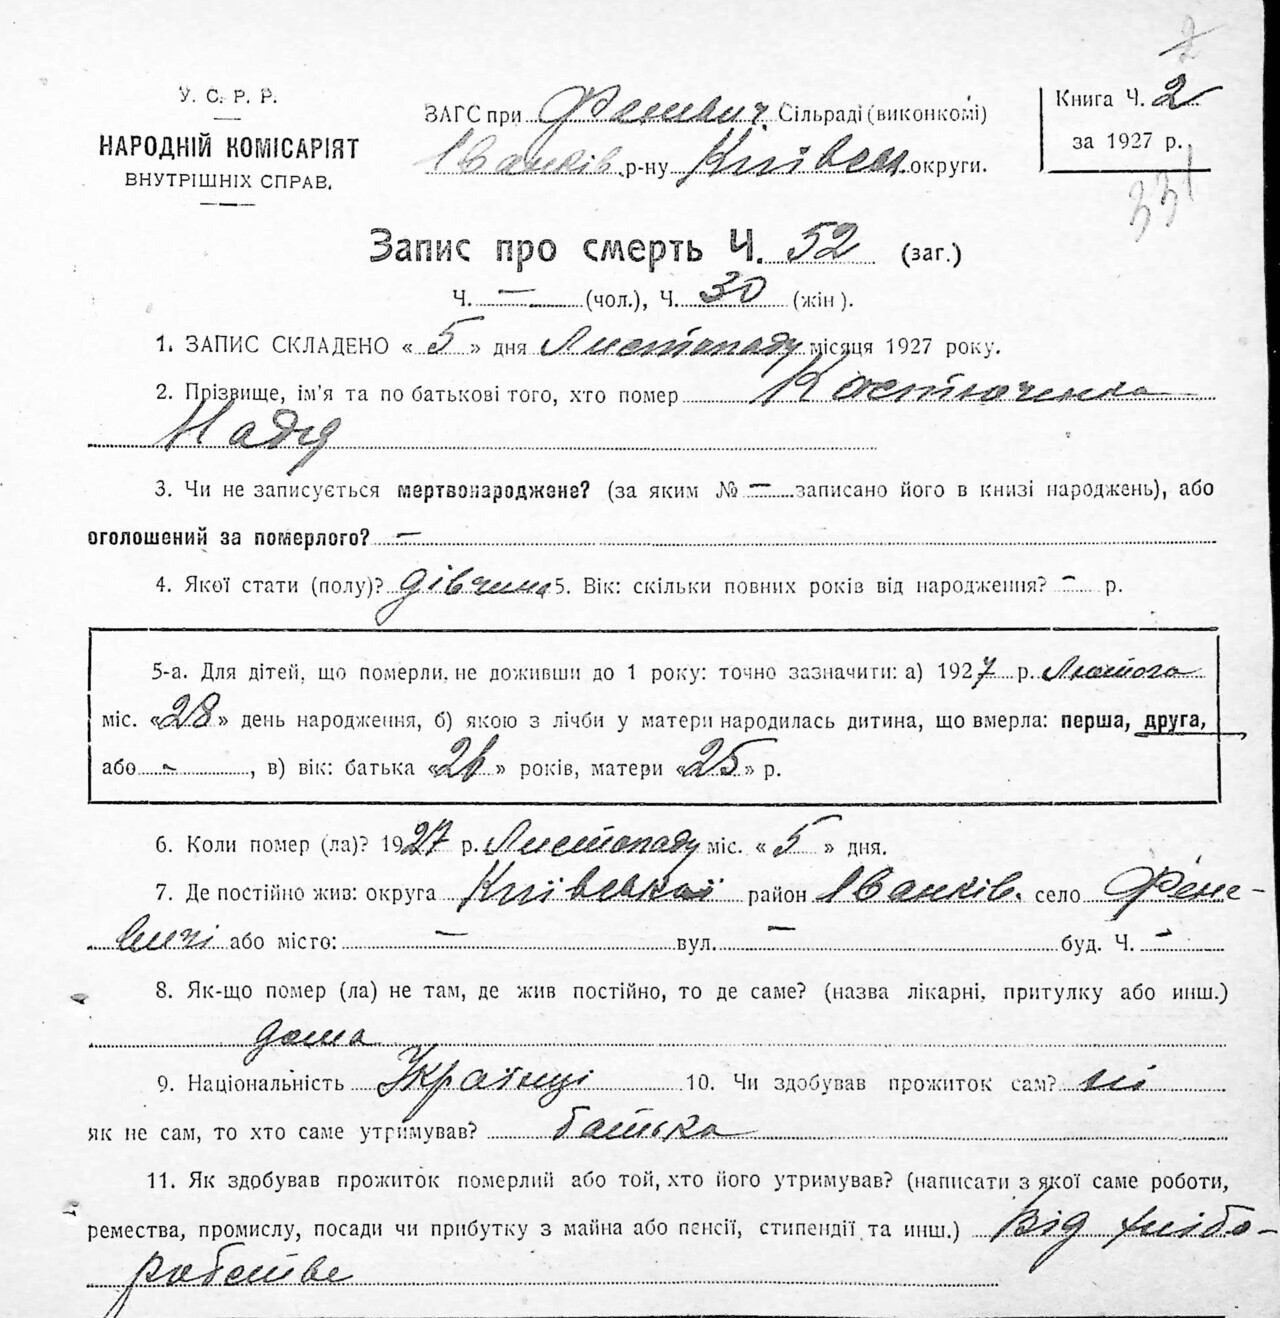 2
У. С. Р. Р.
НАРОДНІЙ КОМІСАРІЯТ
ВНУТРІШНІХ СПРАВ.
ЗАГС при Феневич. Сільраді (виконкомі)
Іванків. р-ну Київськ. округи.
Книга Ч. 2
за 1927 р.
331
Запис про смерть Ч. 52 (заг.)
Ч. — (чол.), Ч. 30 (жін).
1. ЗАПИС СКЛАДЕНО « 5 » дня Листопаду місяця 1927 року.
2. Прізвище, ім'я та по батькові того, хто помер Костюченко
Надя
3. Чи не записується мертвонароджене? (за яким № — записано його в книзі народжень), або
оголошений за померлого? —
4. Якої стати (полу)? дівчина 5. Вік: скільки повних років від народження? — р.
5-а. Для дітей, що померли, не доживши до 1 року: точно зазначити: а) 1927 р. Лютого
міс. «28» день народження, б) якою з лічби у матери народилась дитина, що вмерла: перша, друга,
або - , в) вік: батька «26» років, матери «25» р.
6. Коли помер (ла)? 1927 р. Листопаду міс. « 5 » дня.
7. Де постійно жив: округа Київської район Іванків. село Фене-
вичі або місто: — вул. — буд. Ч. —
8. Як-що помер (ла) не там, де жив постійно, то де саме? (назва лікарні, притулку або инш.)
дома
9. Національність Українці 10. Чи здобував прожиток сам? ні
як не сам, то хто саме утримував? батько
11. Як здобував прожиток померлий або той, хто його утримував? (написати з якої саме роботи,
ремества, промислу, посади чи прибутку з майна або пенсії, стипендії та инш.) Від хлібо-
робстве